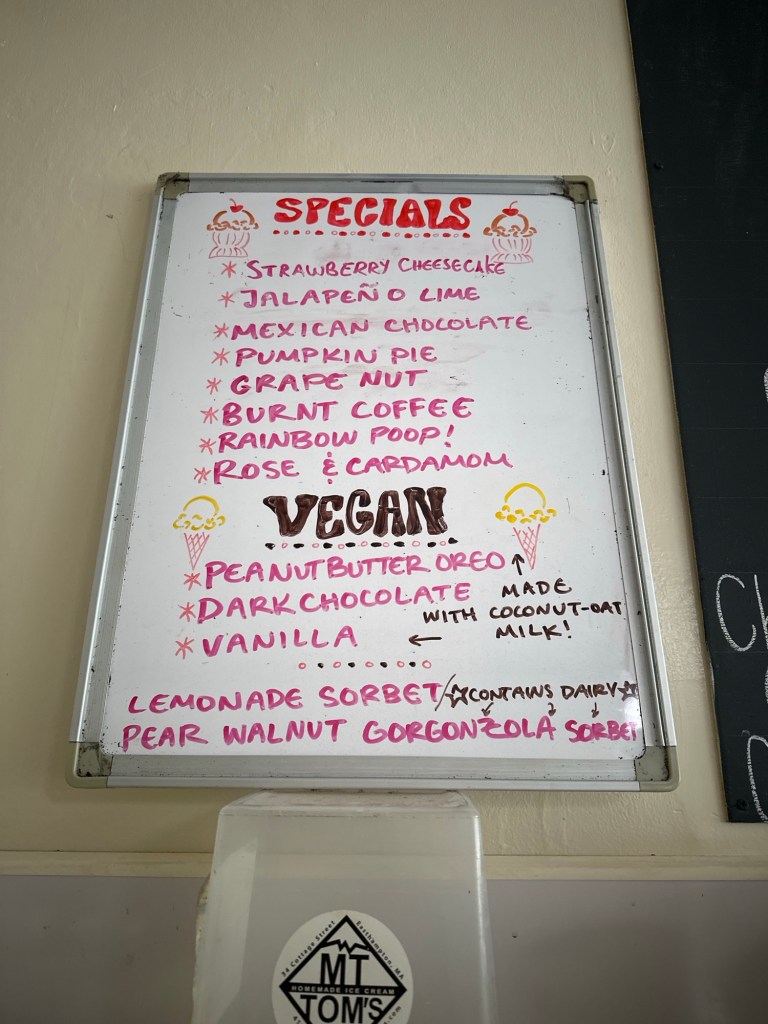 SPECIALS
* STRAWBERRY CHEESECAKE
* JALAPEÑO LIME
* MEXICAN CHOCOLATE
* PUMPKIN PIE
* GRAPE NUT
* BURNT COFFEE
* RAINBOW POOP!
* ROSE & CARDAMOM
VEGAN
* PEANUT BUTTER OREO
* DARK CHOCOLATE
* VANILLA
↑ MADE
WITH COCONUT-OAT
← MILK!
LEMONADE SORBET/☆CONTAINS DAIRY☆
PEAR WALNUT GORGONZOLA SORBET
34 Cottage Street Easthampton, MA
MT
HOMEMADE ICE CREAM
TOM'S